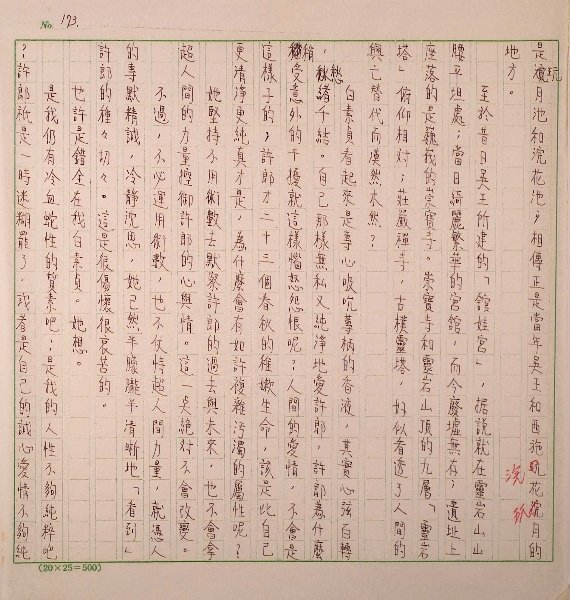 No. 173.
是玩月池和浣花池；相傳正是當年吳王和西施玩花浣月的
浣
玩
地方。
至於昔日吳王所建的「館娃宮」，据說就在靈岩山山
腰平坦處；當日綺麗繁華的宮館，而今廢墟無存；遺址上
座落的是巍峩的崇寶寺。崇寶寺和靈岩山頂的九層「靈岩
塔」俯仰相對；莊嚴禪寺，古樸靈塔，好似看透了人間的
興亡替代而漠然木然？
白素貞看起來是專心吸吮蓴柄的香液，其實心弦百轉
，愁緒千結。自己那樣無私又純淨地愛許郎，許郎為什麼
稍受意外的干擾就這樣惱怒怨恨呢？人間的愛情，不會是
這樣子的；許郎才二十三個春秋的稚嫩生命，該是比自己
更清淨更純真才是，為什麼會有如許複雜污濁的屬性呢？
她堅持不用術數去默察許郎的過去與未來，也不會拿
超人間的力量控御許郎的心與情。這一奌絕對不會改變。
不過，不必運用術數，也不仗恃超人間力量，就憑人
的專默精誠，冷靜沈思，她已然半朦朧半清晰地「看到」
許郎的種々切々。這是很傷懷很哀苦的。
也許是錯全在我白素貞。她想。
是我仍有冷血蛇性的質素吧；是我的人性不夠純粹吧
？許郎祇是一時迷糊罷了，或者是自己的誠心愛情不夠純
(20×25=500)